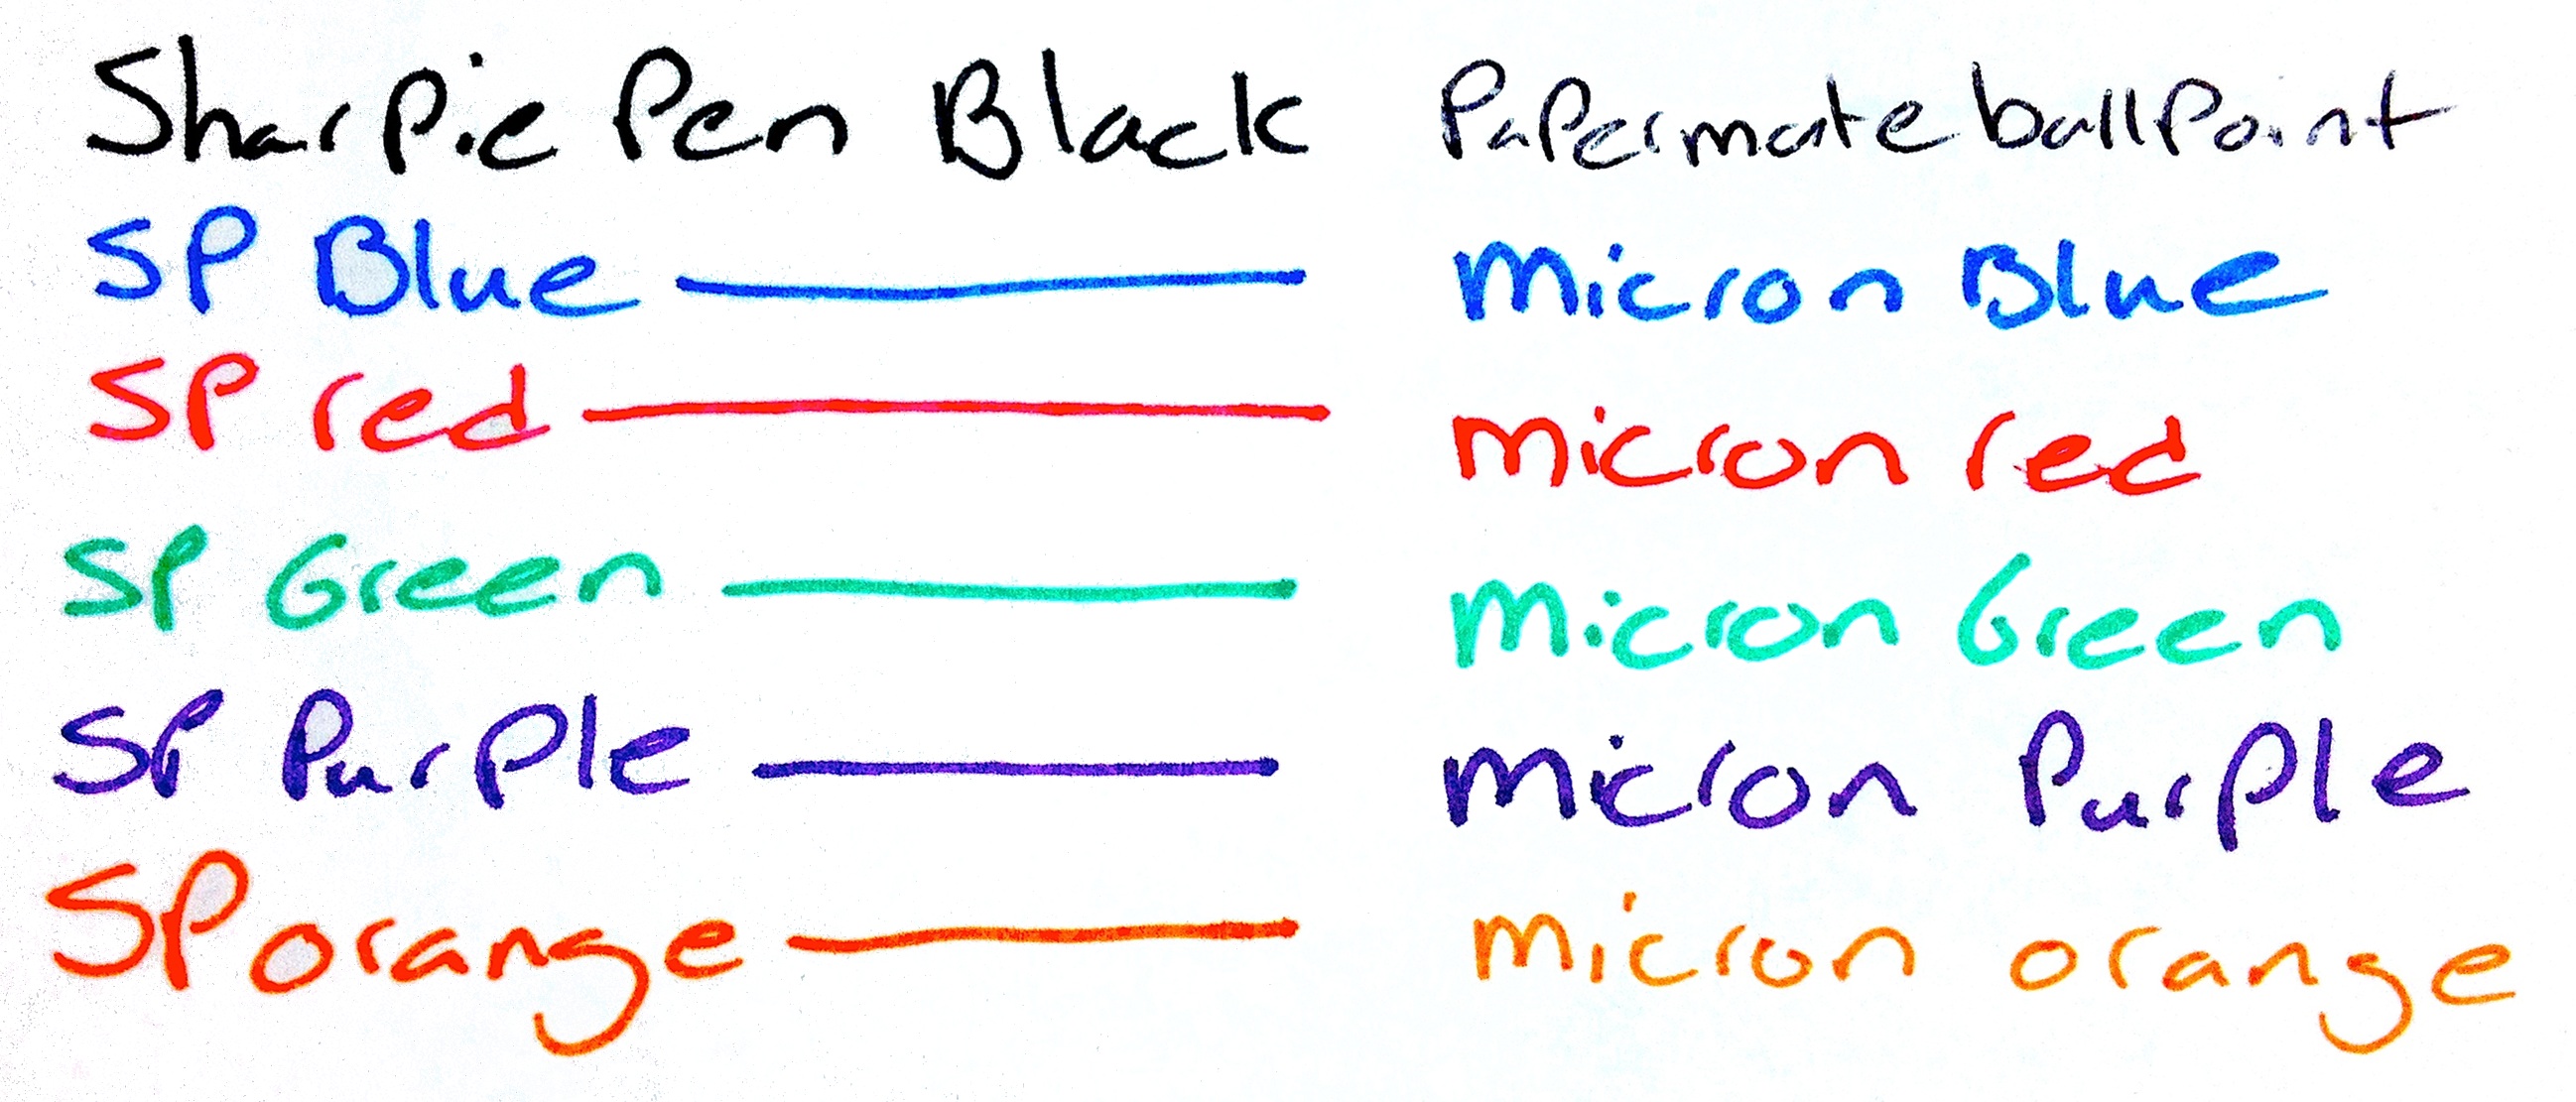 Sharpie Pen Black Papermate ballpoint
SP Blue Micron Blue
SP red Micron red
SP Green Micron Green
SP Purple Micron Purple
SP orange Micron orange